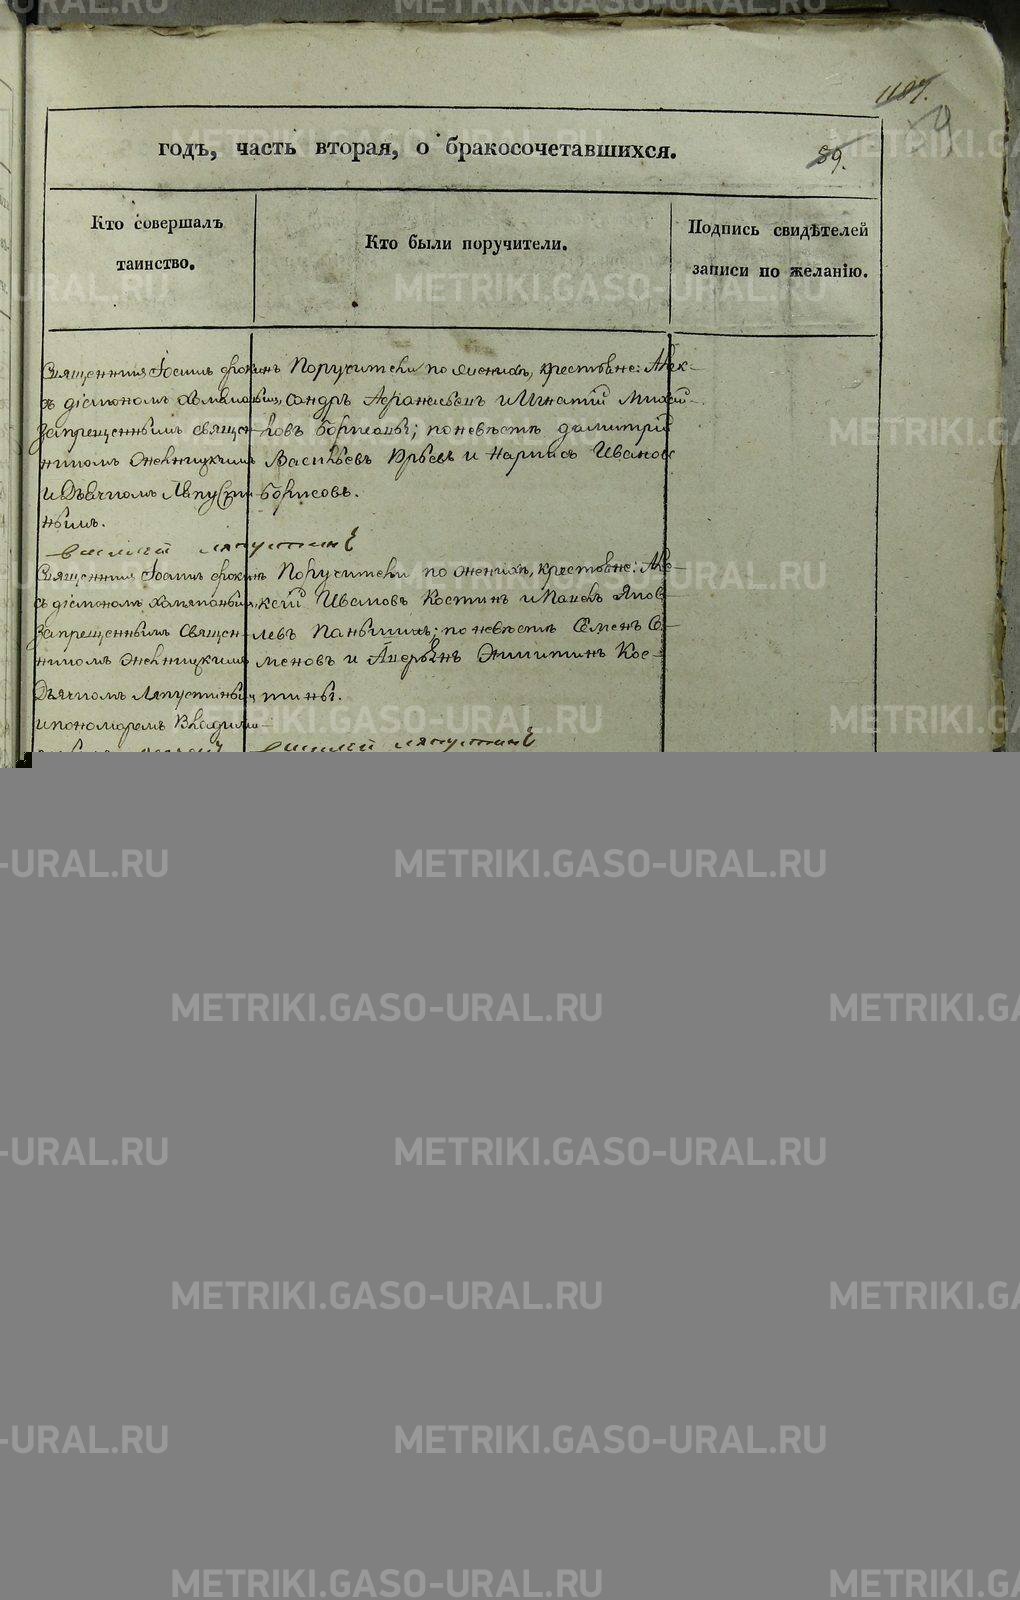 1187.
годъ, часть вторая, о бракосочетавшихся.
89.
Кто совершалъ
таинство.
Кто были поручители.
Подпись свидѣтелей
записи по желанію.
Священник Іоанн Фокинъ
съ діакономъ
запрещеннымъ священ-
никомъ
и Дьячкомъ Ляпустин-
нымъ.
Поручители по женихѣ, крестьяне: Алек-
сандръ Афанасьевъ и Игнатій Михай-
ловъ Борисовы; по невѣстѣ Димитрій
Васильевъ Юрьевъ и Иванов
Борисовъ.
Василій Ляпустинъ
Священник Іоанн Фокинъ
съ діакономъ
запрещеннымъ Священ-
никомъ
Дьячкомъ Ляпустинымъ
и пономаремъ Владими-
Поручители по женихѣ, крестьяне: Але-
ксѣй Ивановъ Костинъ и Яков-
левъ Паньшинъ; по невѣстѣ Семенъ Се-
меновъ и Никитинъ Кос-
тины.
Василій Ляпустинъ
METRIKI.GASO-URAL.RU